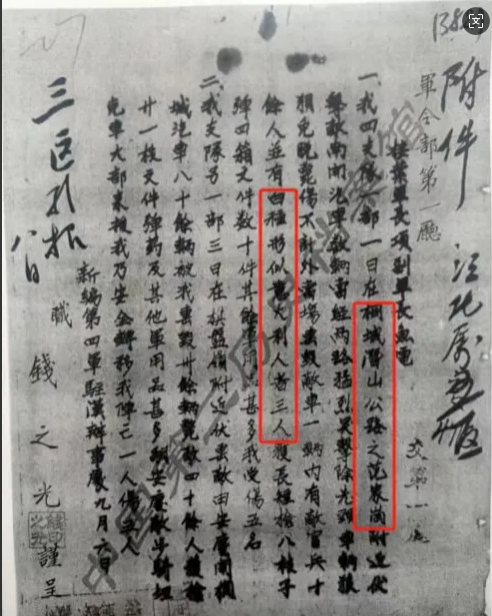 附件
軍令部第一廳
接葉軍長項副軍長魚電
交第一
一、我四支隊一部一日在桐城潛山公路之范家崗附近伏
擊敵南開汽車數輛當經兩路猛烈夾擊除先頭車輛狼
狽免脫斃傷不計外當場毀敵車一輛內有敵官兵十
餘人並有四種形似意大利人者三人獲長短槍八枝子
彈四箱文件數十件其餘軍用品甚多我受傷五名
二、我支隊另一部三日在棋盤嶺附近伏擊敵由安慶開桐
城汽車八十餘輛被我擊毀卅餘輛斃敵四十餘人獲槍
廿一枝文件彈药及其他軍用品甚多嗣安慶敵坦
克車大部來援我乃安全轉移我陣亡一人傷三人
新編第四軍駐漢辦事處九月六日
職錢之光謹呈
八日
中國第二歷史檔案館